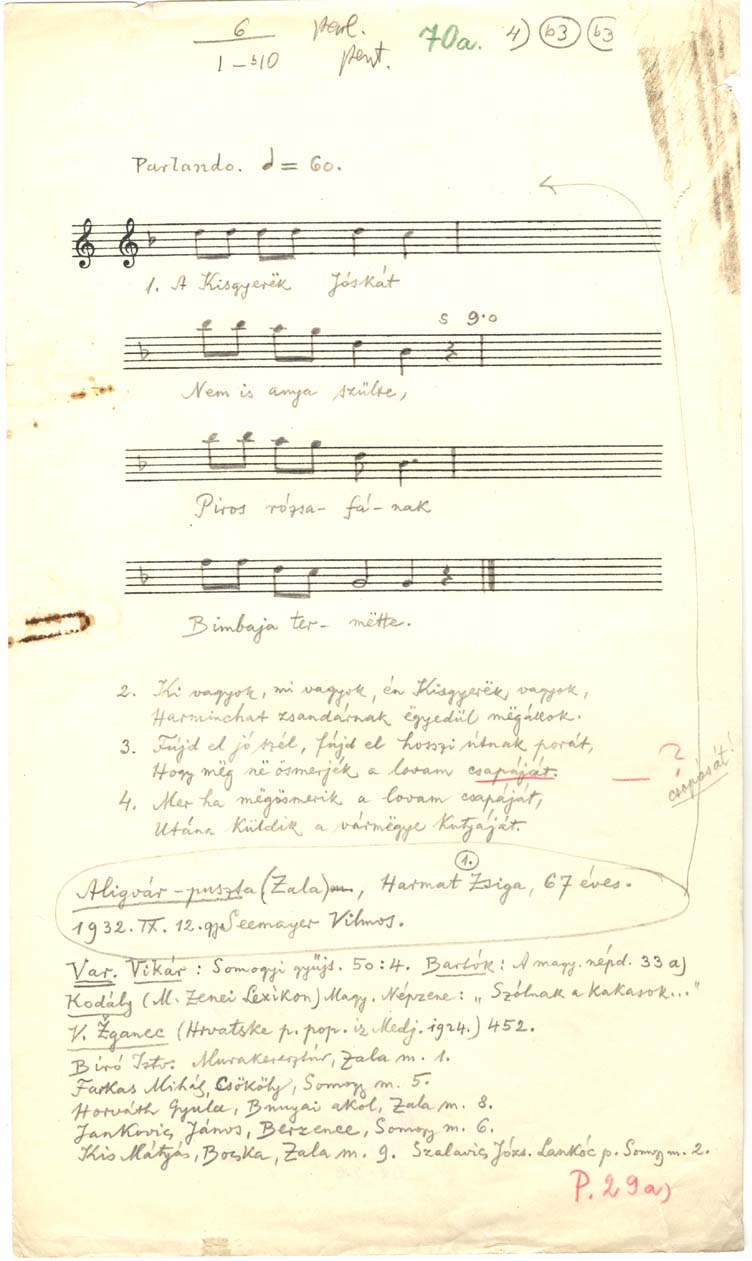 6 parl. 70a. 4) b3 b3
1 – b10 pent.
Parlando. = 60.
1. A Kisgyerëk Jóskát
5 9·0
Nem is anya szülte,
Piros rózsa- fá- nak
Bimbaja ter- mëtte.
2. Ki vagyok, mi vagyok, én Kisgyerëk vagyok,
Harminchat zsandárnak ëgyedül mëgállok.
3. Fújd el jó szél, fújd el hosszi útnak porát,
Hogy mëg në ösmerjék a lovam csapáját. — ?
csapását!
4. Mer ha mëgösmerik a lovam csapáját,
Utána küldik a vármëgye kutjáját.
1.
Aligvár-puszta (Zala) , Harmat Zsiga, 67 éves.
1932. IX. 12. gy. Seemayer Vilmos.
Var. Vikár: Somogyi gyűjt. 50:4. Bartók: A magy. népd. 33a)
Kodály (M. Zenei Lexikon) Magy. Népzene: „Szólnak a kakasok..."
V. Žganec (Hrvatske p. pop. iz Medj. 1924.) 452.
Bíró Istv. Murakeresztúr, Zala m. 1.
Farkas Mihály, Csököly, Somogy m. 5.
Horváth Gyula, Bunyai akol, Zala m. 8.
Jankovics János, Berzence, Somogy m. 6.
Kis Mátyás, Bocska, Zala m. 9. Szalavics Józs. Lankóc p. Somogy m. 2.
P. 29a)